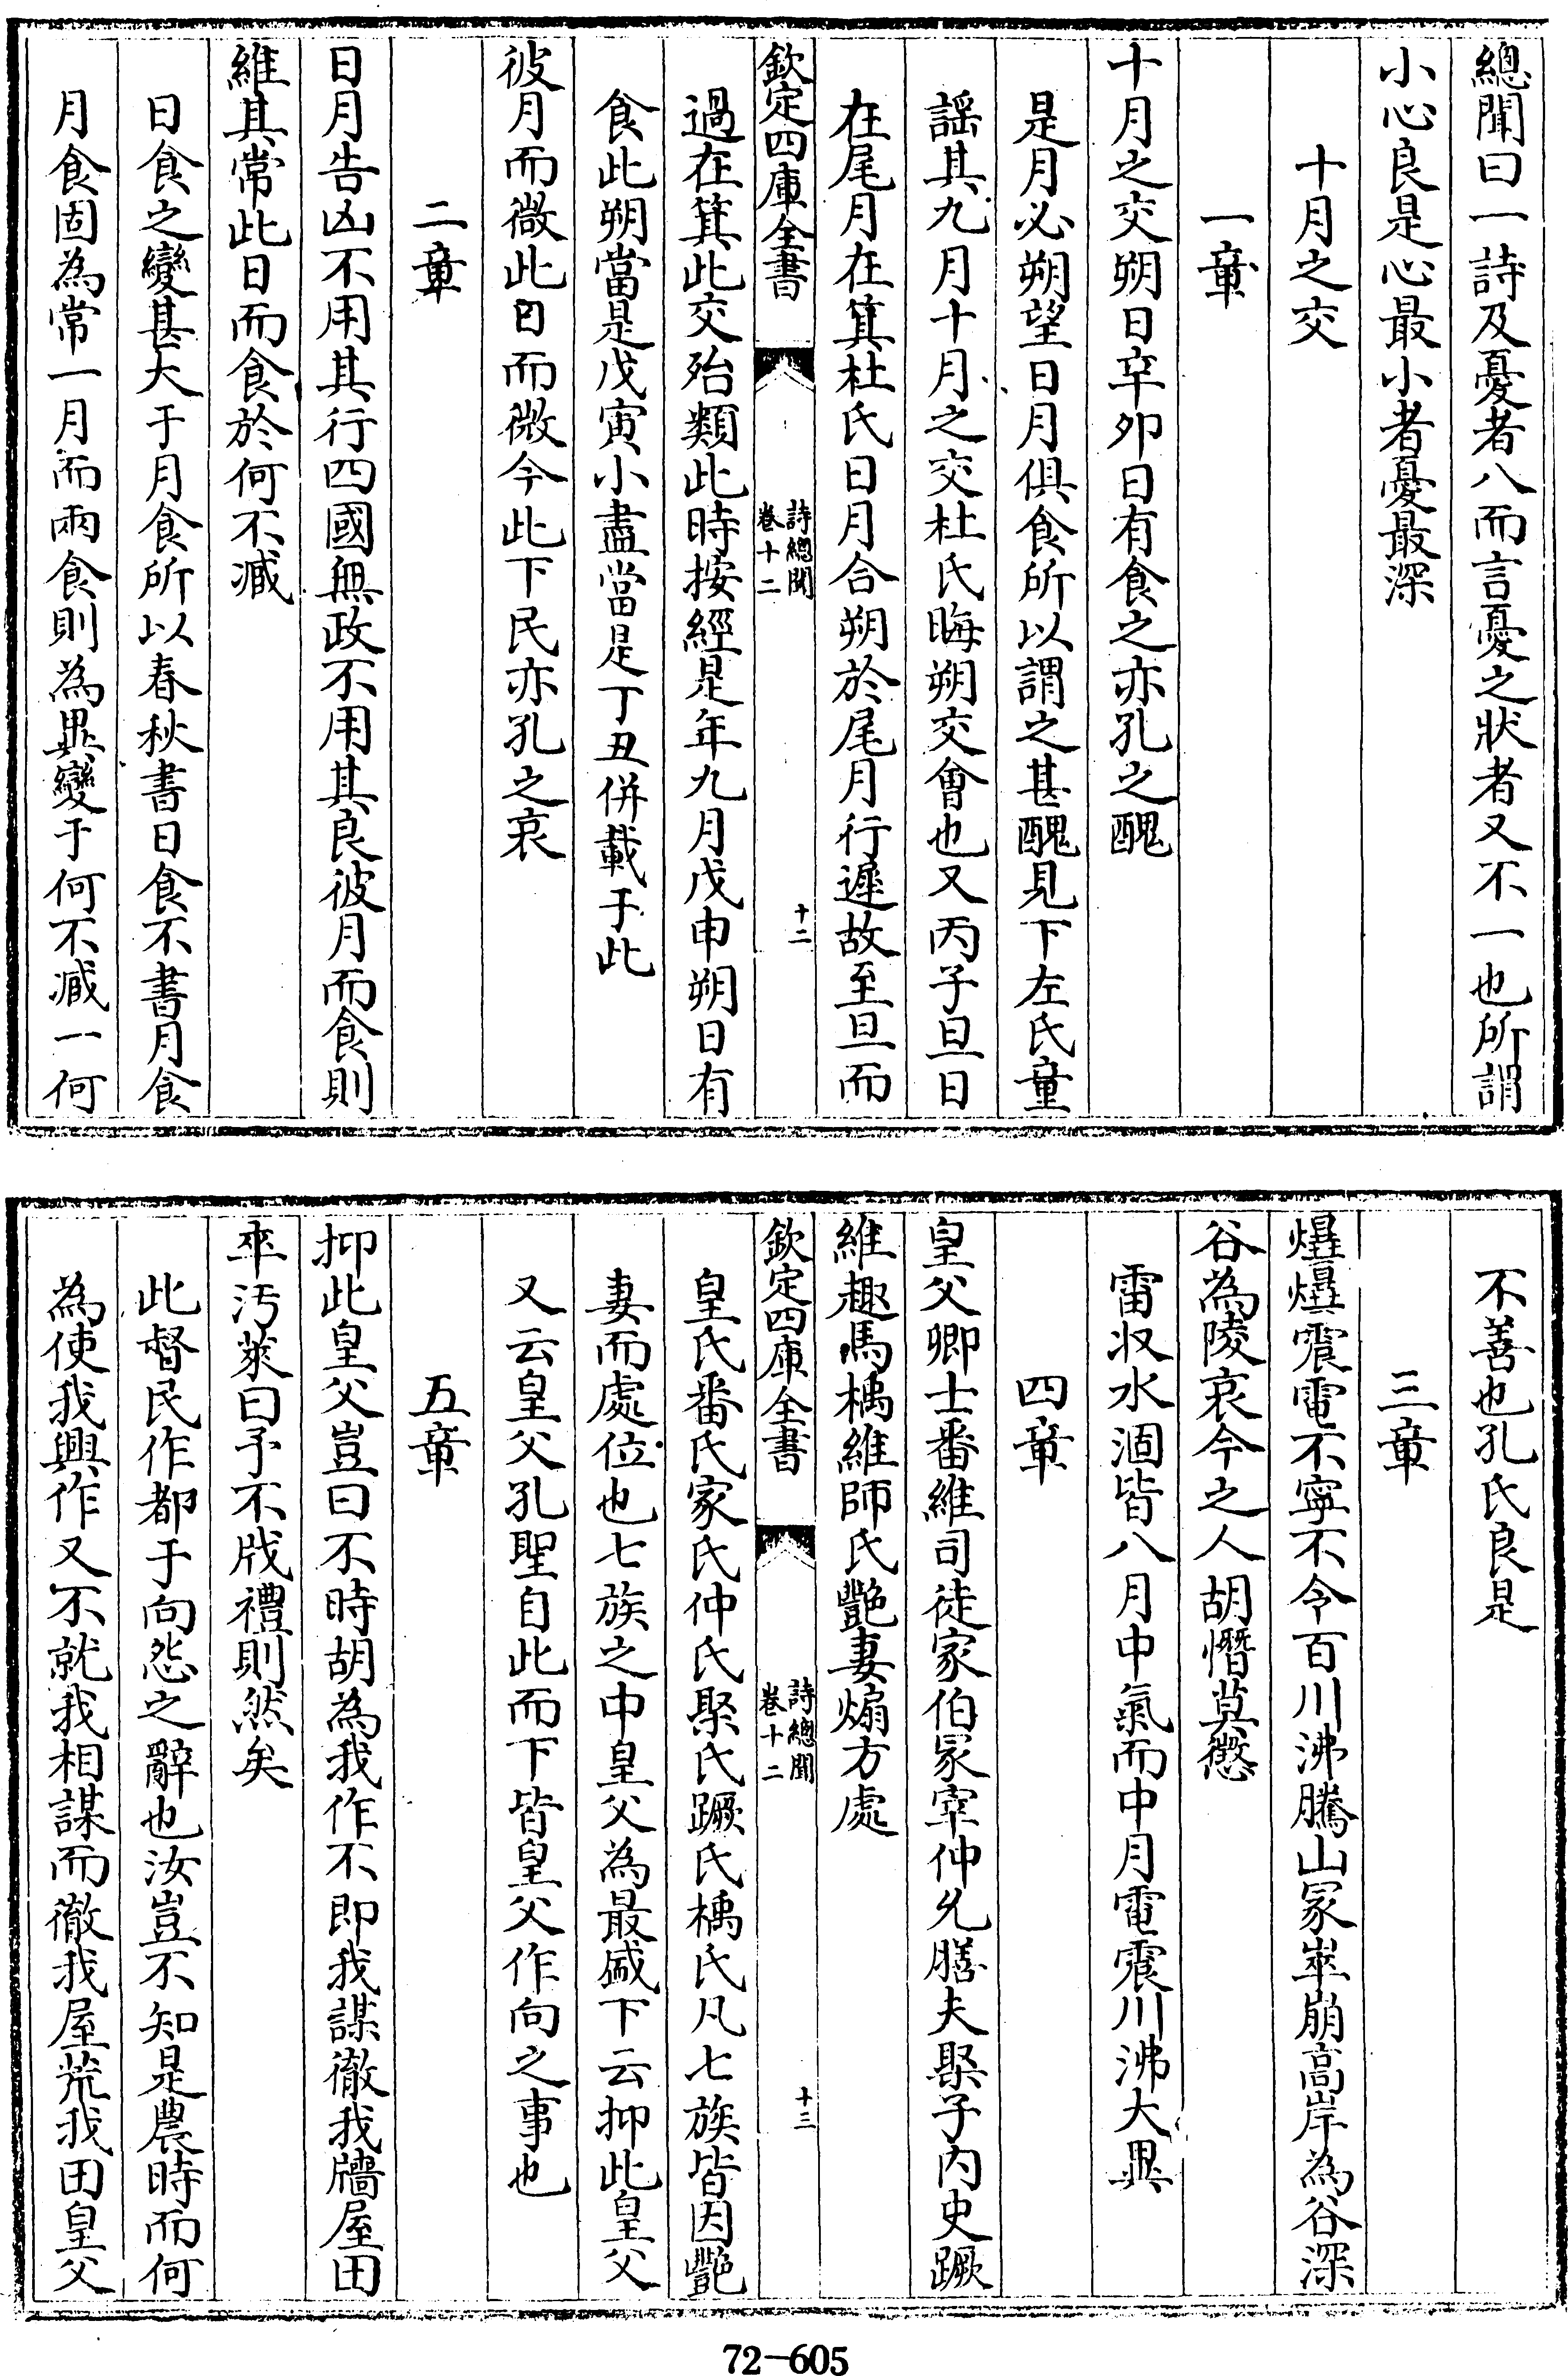 總聞曰一詩及憂者八而言憂之狀者又不一也所謂
小心良是心最小者憂最深
十月之交
一章
十月之交朔日辛卯日有食之亦孔之醜
是月必朔望日月俱食所以謂之甚醜見下左氏童
謡其九月十月之交杜氏晦朔交會也又丙子旦日
在尾月在箕杜氏日月合朔於尾月行遲故至旦而
欽定四庫全書
詩總聞
卷十二
十二
過在箕此交殆類此時按經是年九月戊申朔日有
食此朔當是戊寅小盡當是丁丑併載于此
彼月而微此日而微今此下民亦孔之哀
二章
日月告凶不用其行四國無政不用其良彼月而食則
維其常此日而食於何不臧
日食之變甚大于月食所以春秋書日食不書月食
月食固為常一月而兩食則為異變于何不臧一何
不善也孔氏良是
三章
爗爗震電不寧不令百川沸騰山冢崒崩高岸為谷深
谷為陵哀今之人胡憯莫懲
雷收水涸皆八月中氣而中月電震川沸大異
四章
皇父卿士番維司徒家伯冢宰仲允膳夫聚子内史蹶
維趣馬楀維師氏艶妻煽方處
欽定四庫全書
詩總聞
卷十二
十三
皇氏番氏家氏仲氏聚氏蹶氏楀氏凡七族皆因艶
妻而處位也七族之中皇父為最盛下云抑此皇父
又云皇父孔聖自此而下皆皇父作向之事也
五章
抑此皇父豈曰不時胡為我作不即我謀徹我牆屋田
卒汚萊曰予不戕禮則然矣
此督民作都于向怨之辭也汝豈不知是農時而何
為使我興作又不就我相謀而徹我屋荒我田皇父
72-605